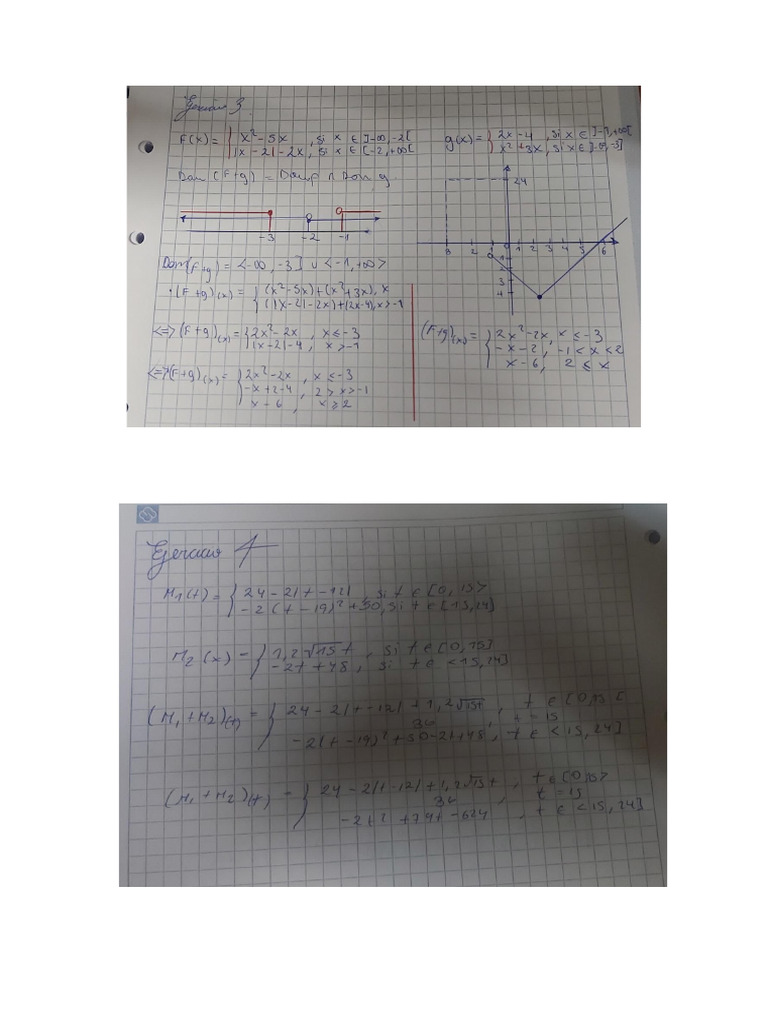 Ejercicio 3
F(x) = { x² - 5x , si x ∈ ]-∞, -2[
|x - 2| - 2x , si x ∈ [-2, +∞[
g(x) = { 2x - 4 , si x ∈ ]-1, +∞[
x² + 3x , si x ∈ ]-∞, -3]
Dom (F+g) = Dom f ∩ Dom g
-3 -2 -1
Dom(F+g) = <-∞, -3] ∪ <-1, +∞>
• (F+g)(x) = { (x² - 5x) + (x² + 3x), x
(|x - 2| - 2x) + (2x - 4), x > -1
<=> (F+g)(x) = { 2x² - 2x , x ≤ -3
|x - 2| - 4 , x > -1
<=> (F+g)(x) = { 2x² - 2x , x ≤ -3
-x + 2 - 4 , 2 > x > -1
x - 6 , x ≥ 2
24
3 2 1 0 1 2 3 4 5 6
1
2
3
4
(F+g)(x) = { 2x² - 2x, x ≤ -3
-x - 2, -1 < x < 2
x - 6, 2 ≤ x
Ejercicio 4
M1(t) = { 24 - 2|t - 12| , si t ∈ [0, 15>
-2(t - 19)² + 50, si t ∈ [15, 24]
M2(x) = { 1,2√15t , si t ∈ [0, 15]
-2t + 48 , si t ∈ <15, 24]
(M1 + M2)(t) = { 24 - 2|t - 12| + 1,2√15t , t ∈ [0, 15[
36 , t = 15
-2(t - 19)² + 50 - 2t + 48 , t ∈ <15, 24]
(M1 + M2)(t) = { 24 - 2|t - 12| + 1,2√15t , t ∈ [0, 15>
36 , t = 15
-2t² + 74t - 624 , t ∈ <15, 24]